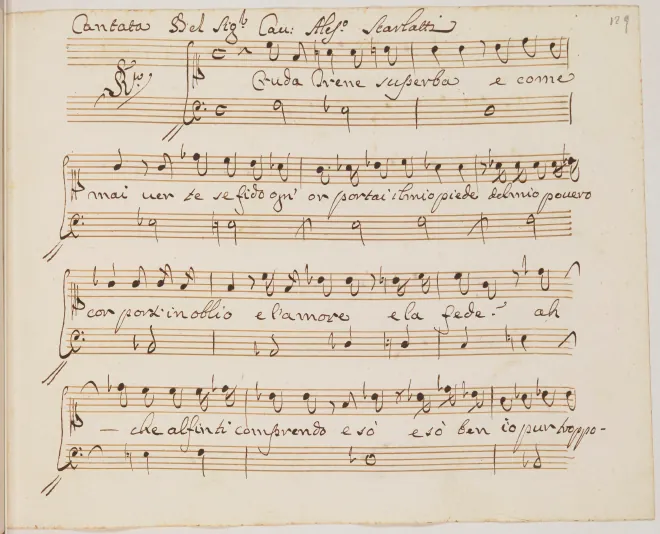 Cantata Del Sig.r Cau: Aless.o Scarlatti
129
Cruda Irene superba e come
mai uer te se fido ogn' or portai il mio piede del mio pouero
cor porti in oblio e l'amore e la fede? ah
che al fin ti comprendo e sò e sò ben io pur troppo -